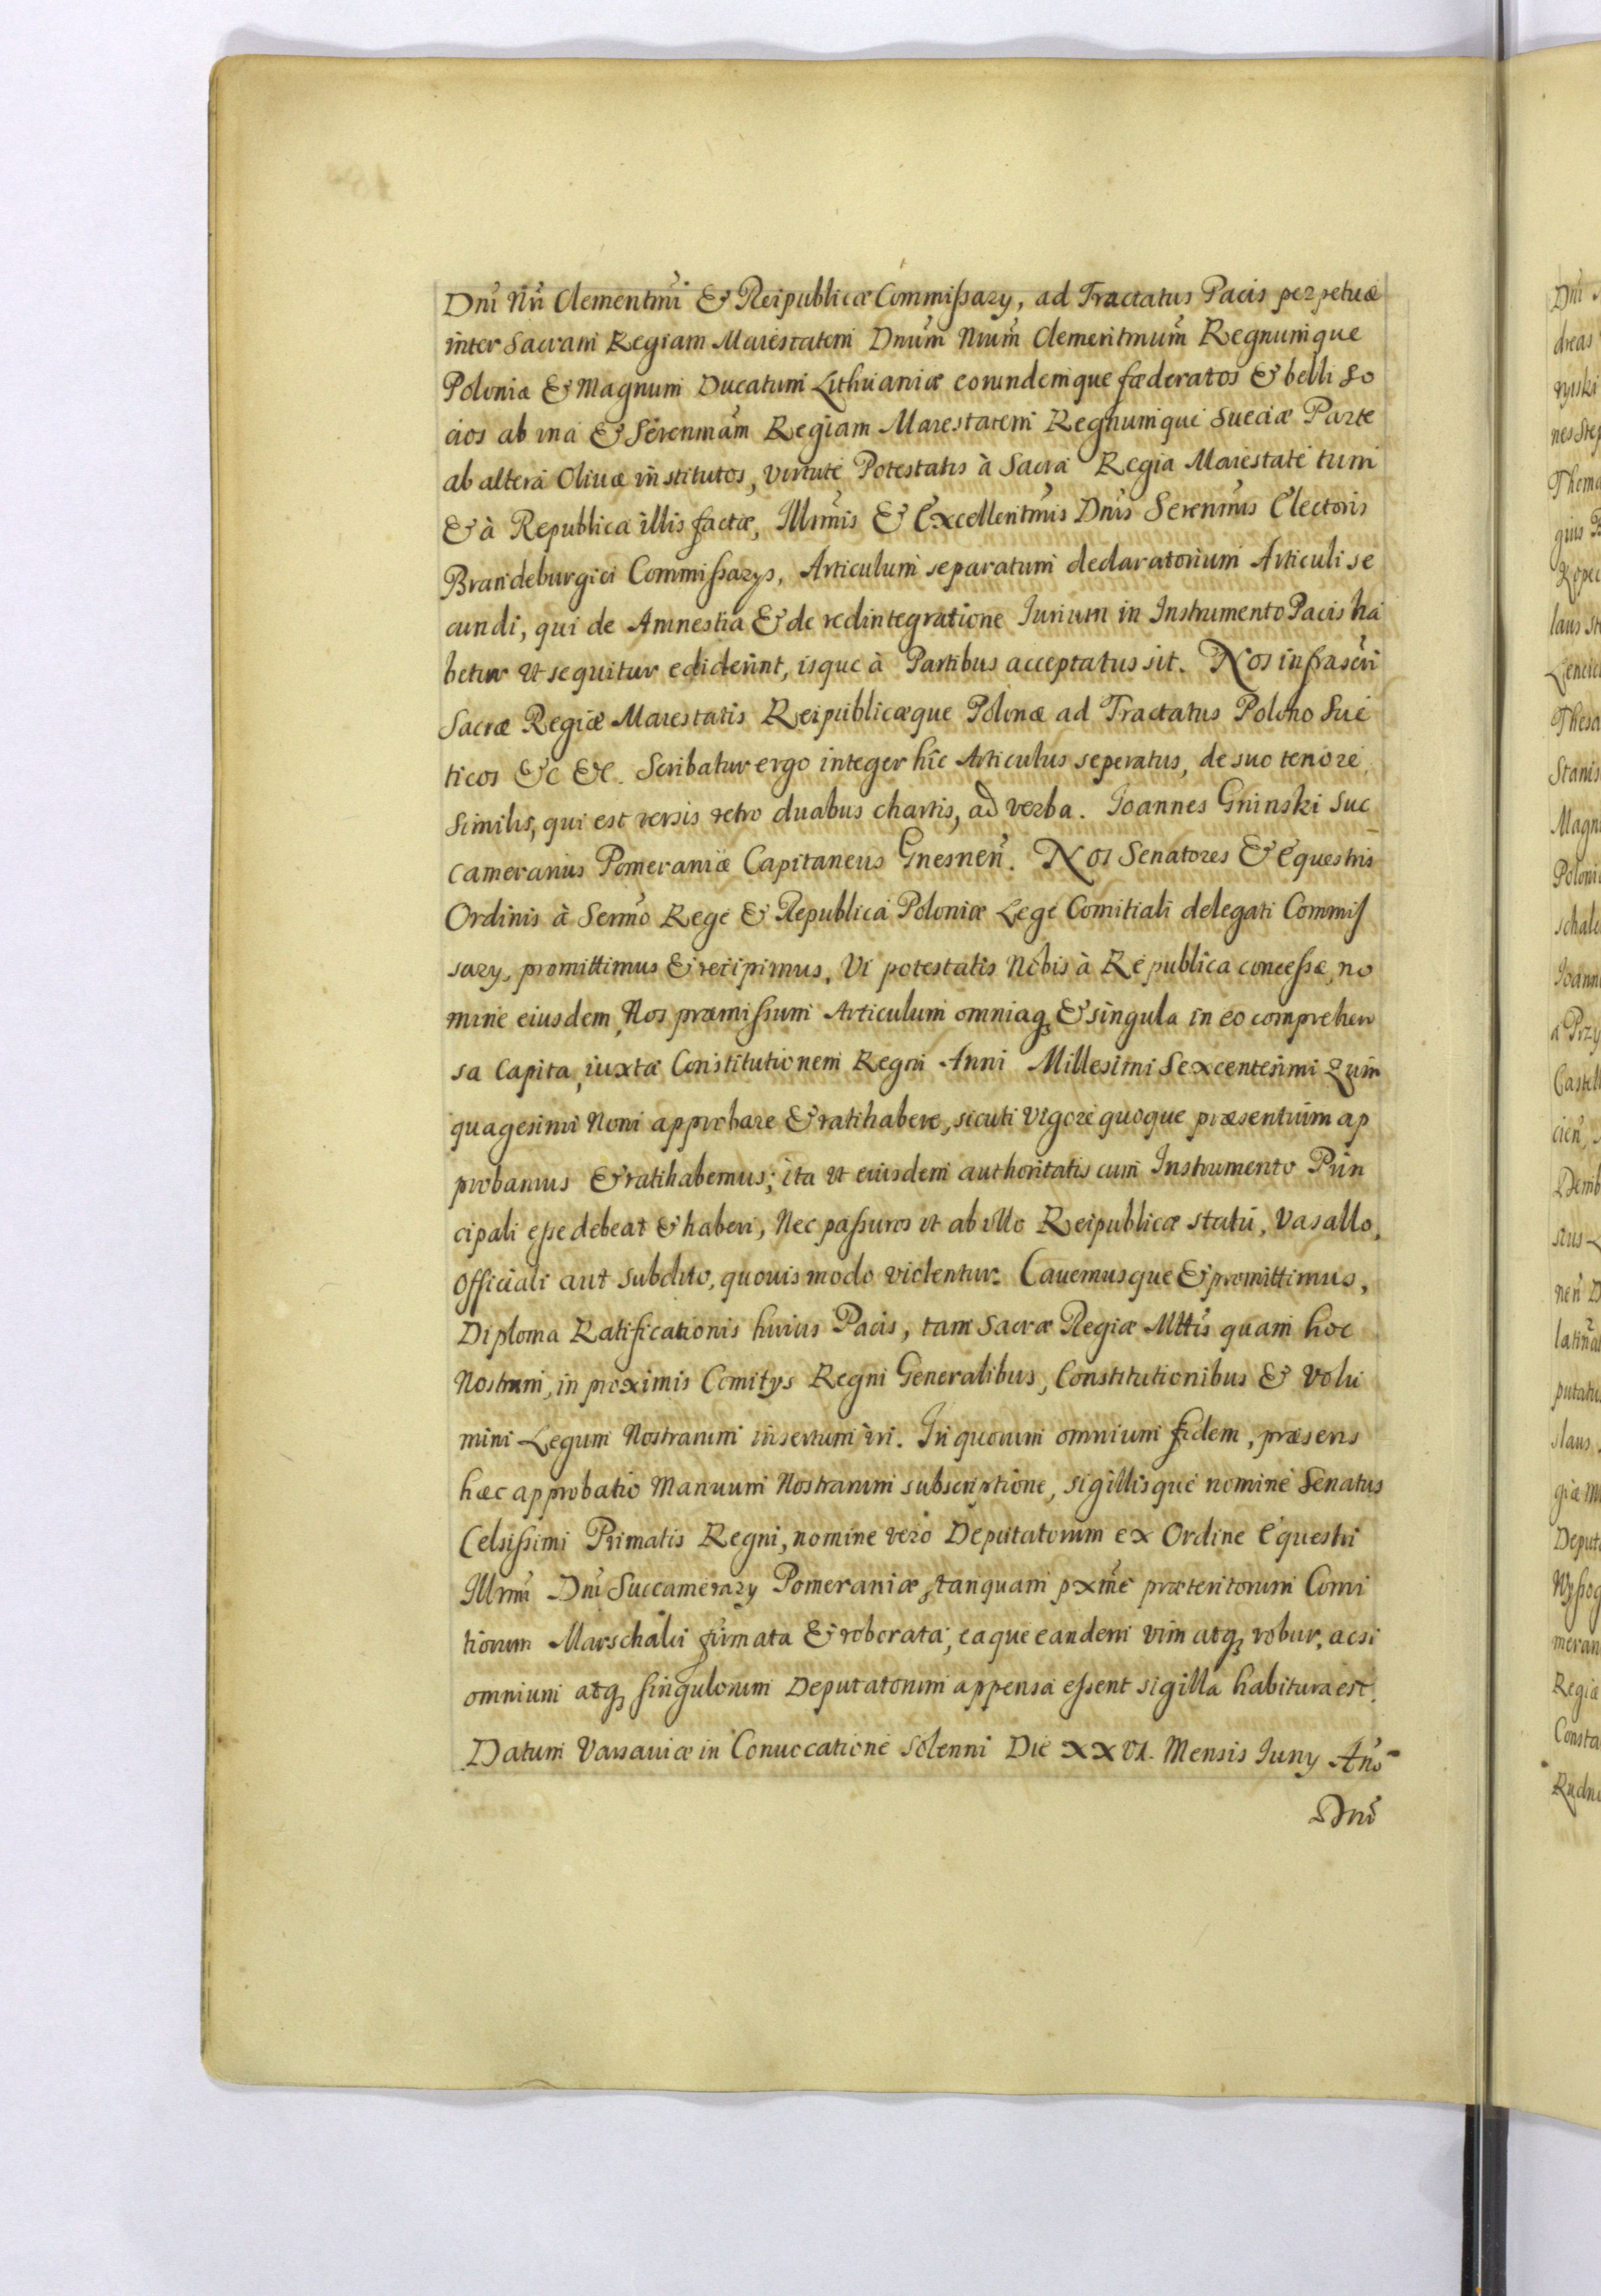 Dnĩ Nrĩ Clementmĩ & Reipublicæ Commissary, ad Tractatus Pacis perpetuæ
inter Sacram Regiam Maiestatem Dnũm Nrũm Clementmũm Regnumque
Poloniæ & Magnum Ducatum Lithuaniæ eorundemque fæderatos & belli so
cios ab unâ & Serenmãm Regiam Maiestatem Regnumque Sueciæ Parte
ab alterâ Olivæ institutos, virtute Potestatis à Sacra Regia Maiestate tum
& à Republica illis factæ, Illrmis & Excellentmis Dnis Serenmis Electoris
Brandeburgici Commissarys, Articulum separatum declaratorium Articuli se
cundi, qui de Amnestia & de redintegratione Iurium in Instrumento Pacis ha
betur ut sequitur ediderint, isque à Partibus acceptatus sit. Nos infrascri
Sacræ Regiæ Maiestatis Reipublicæque Polonæ ad Tractatus Polono Sue
ticos &c &c. Scribatur ergo integer hîc Articulus seperatus, de suo tenore
similis, qui est versis retro duabus chartis, ad verba. Ioannes Gninski Suc
camerarius Pomeraniæ Capitaneus Gnesneñ. Nos Senatores & Equestris
Ordinis à Sermo Rege & Republica Poloniæ Lege Comitiali delegati Commis
sary, promittimus & recipimus, Vi potestatis Nobis à Republica concessæ, no
mine eiusdem, Nos præmissum Articulum omniaq, & singula in eo comprehen
sa Capita, iuxta Constitutionem Regni Anni Millesimi Sexcentesimi Quin
quagesimi Noni approbare & ratihabere, sicuti vigore quoque præsentium ap
probamus & ratihabemus; ita ut eiusdem authoritatis cum Instrumento Prin
cipali esse debeat & haberi, Nec passuros ut ab ullo Reipublicæ statu, Vasallo,
Officiali aut subdito, quovis modo violentur. Cavemusque & promittimus,
Diploma Ratificationis huius Pacis, tam Sacræ Regiæ Mttis quam hoc
Nostrum, in proximis Comitys Regni Generalibus, Constitutionibus & Volu
mini Legum Nostrarum insertum iri. In quorum omnium fidem, præsens
hæc approbatio Manuum Nostrarum subscriptione, sigillisque nomine Senatus
Celsissimi Primatis Regni, nomine vero Deputatorum ex Ordine Equestri
Illrmi Dnĩ Succamerary Pomeraniæ, tanquam pxme præteritorum Comi
tiorum Marschalci firmata & roborata; eaque eandem vim atq, robur, acsi
omnium atq, singulorum Deputatorum appensa essent sigilla habitura est.
Datum Varsaviæ in Convocatione solenni Die XXVI. Mensis Iuny Año
Dnĩ